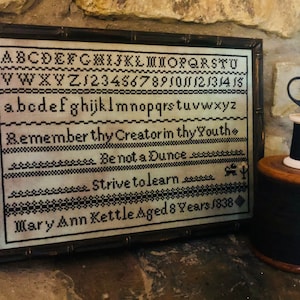 ABCDEFGHIJKLMNOPQRSTU
VWXYZ123456789101112131415
abcdefghijklmnopqrstuvwxyz
Remember thy Creator in thy Youth
Be not a Dunce
Strive to learn
Mary Ann Kettle Aged 8 Years 1838